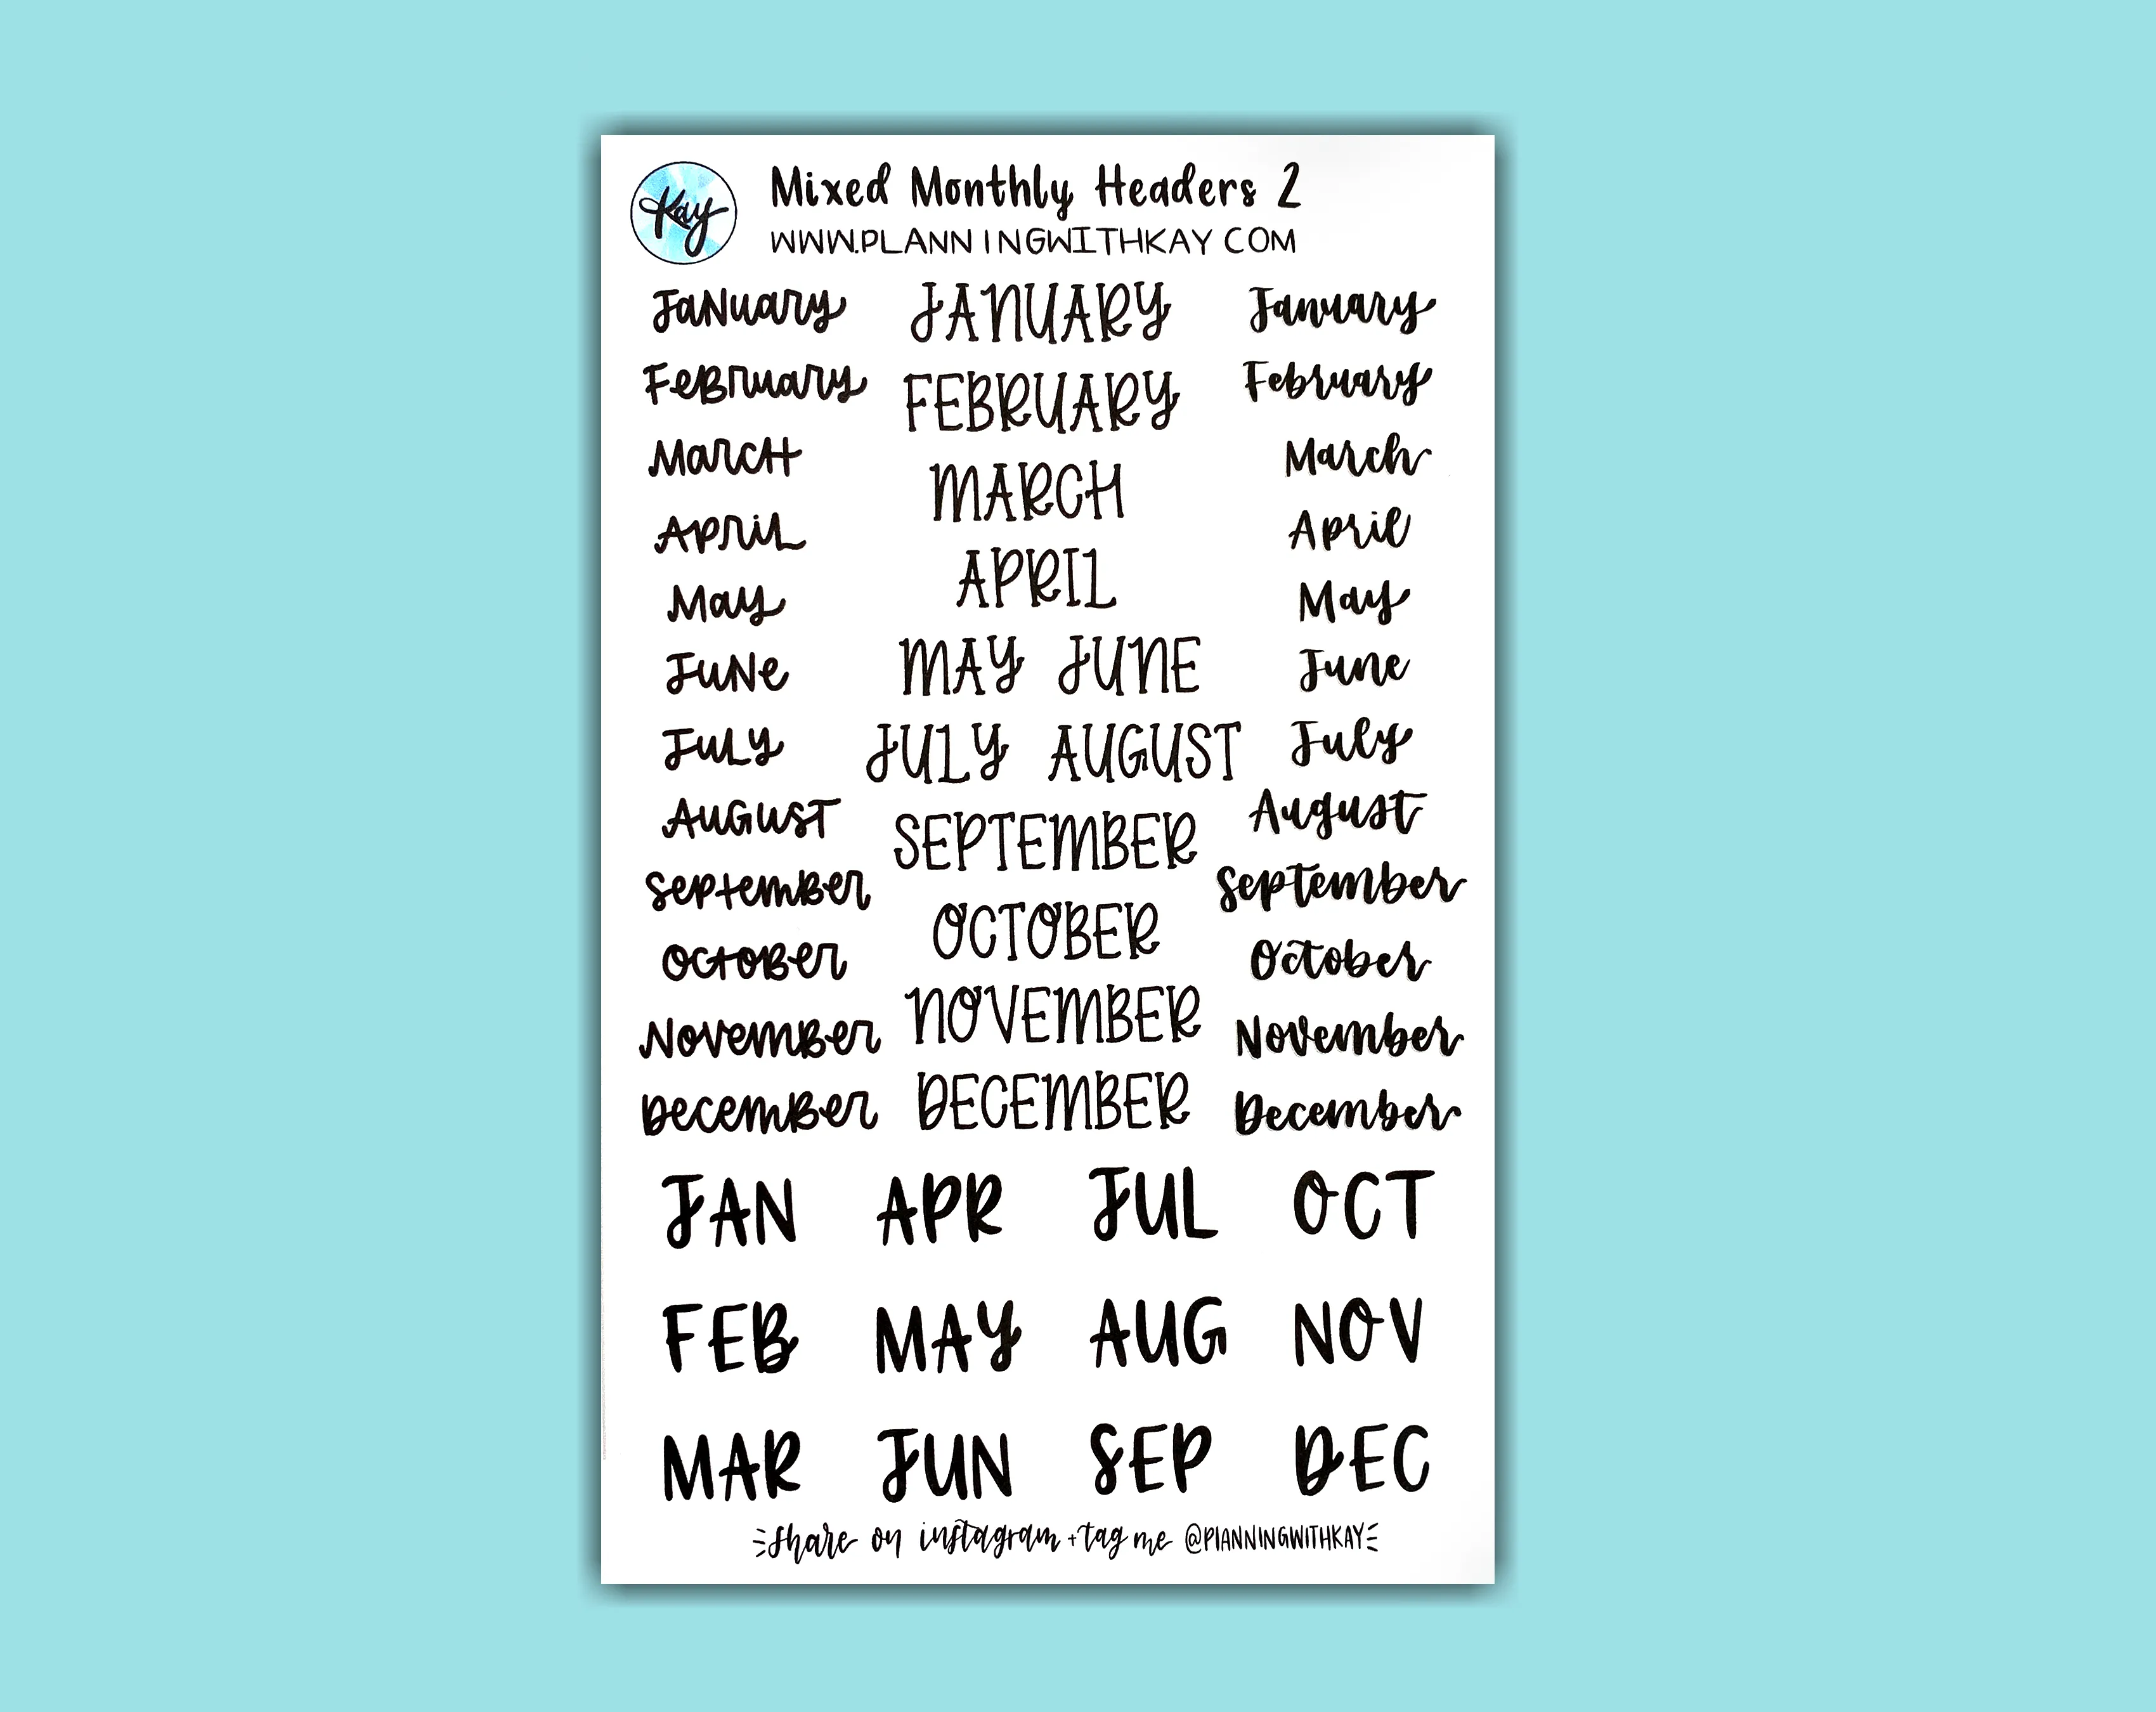 Kay
Mixed Monthly Headers 2
WWW.PLANNINGWITHKAY COM
JaNuary JANUARY January
FeBruary FEBRUARY February
MarcH MARCH March
APriL APRIL April
May MAY JUNE May
JuNe JULY AUGUST June
JuLy SEPTEMBER July
AuGusT OCTOBER August
SePtemBer NOVEMBER September
OctoBer DECEMBER October
NovemBer November
DecemBer December
JAN APR JUL OCT
FEB MAY AUG NOV
MAR JUN SEP DEC
share on instagram + tag me @PLANNINGWITHKAY